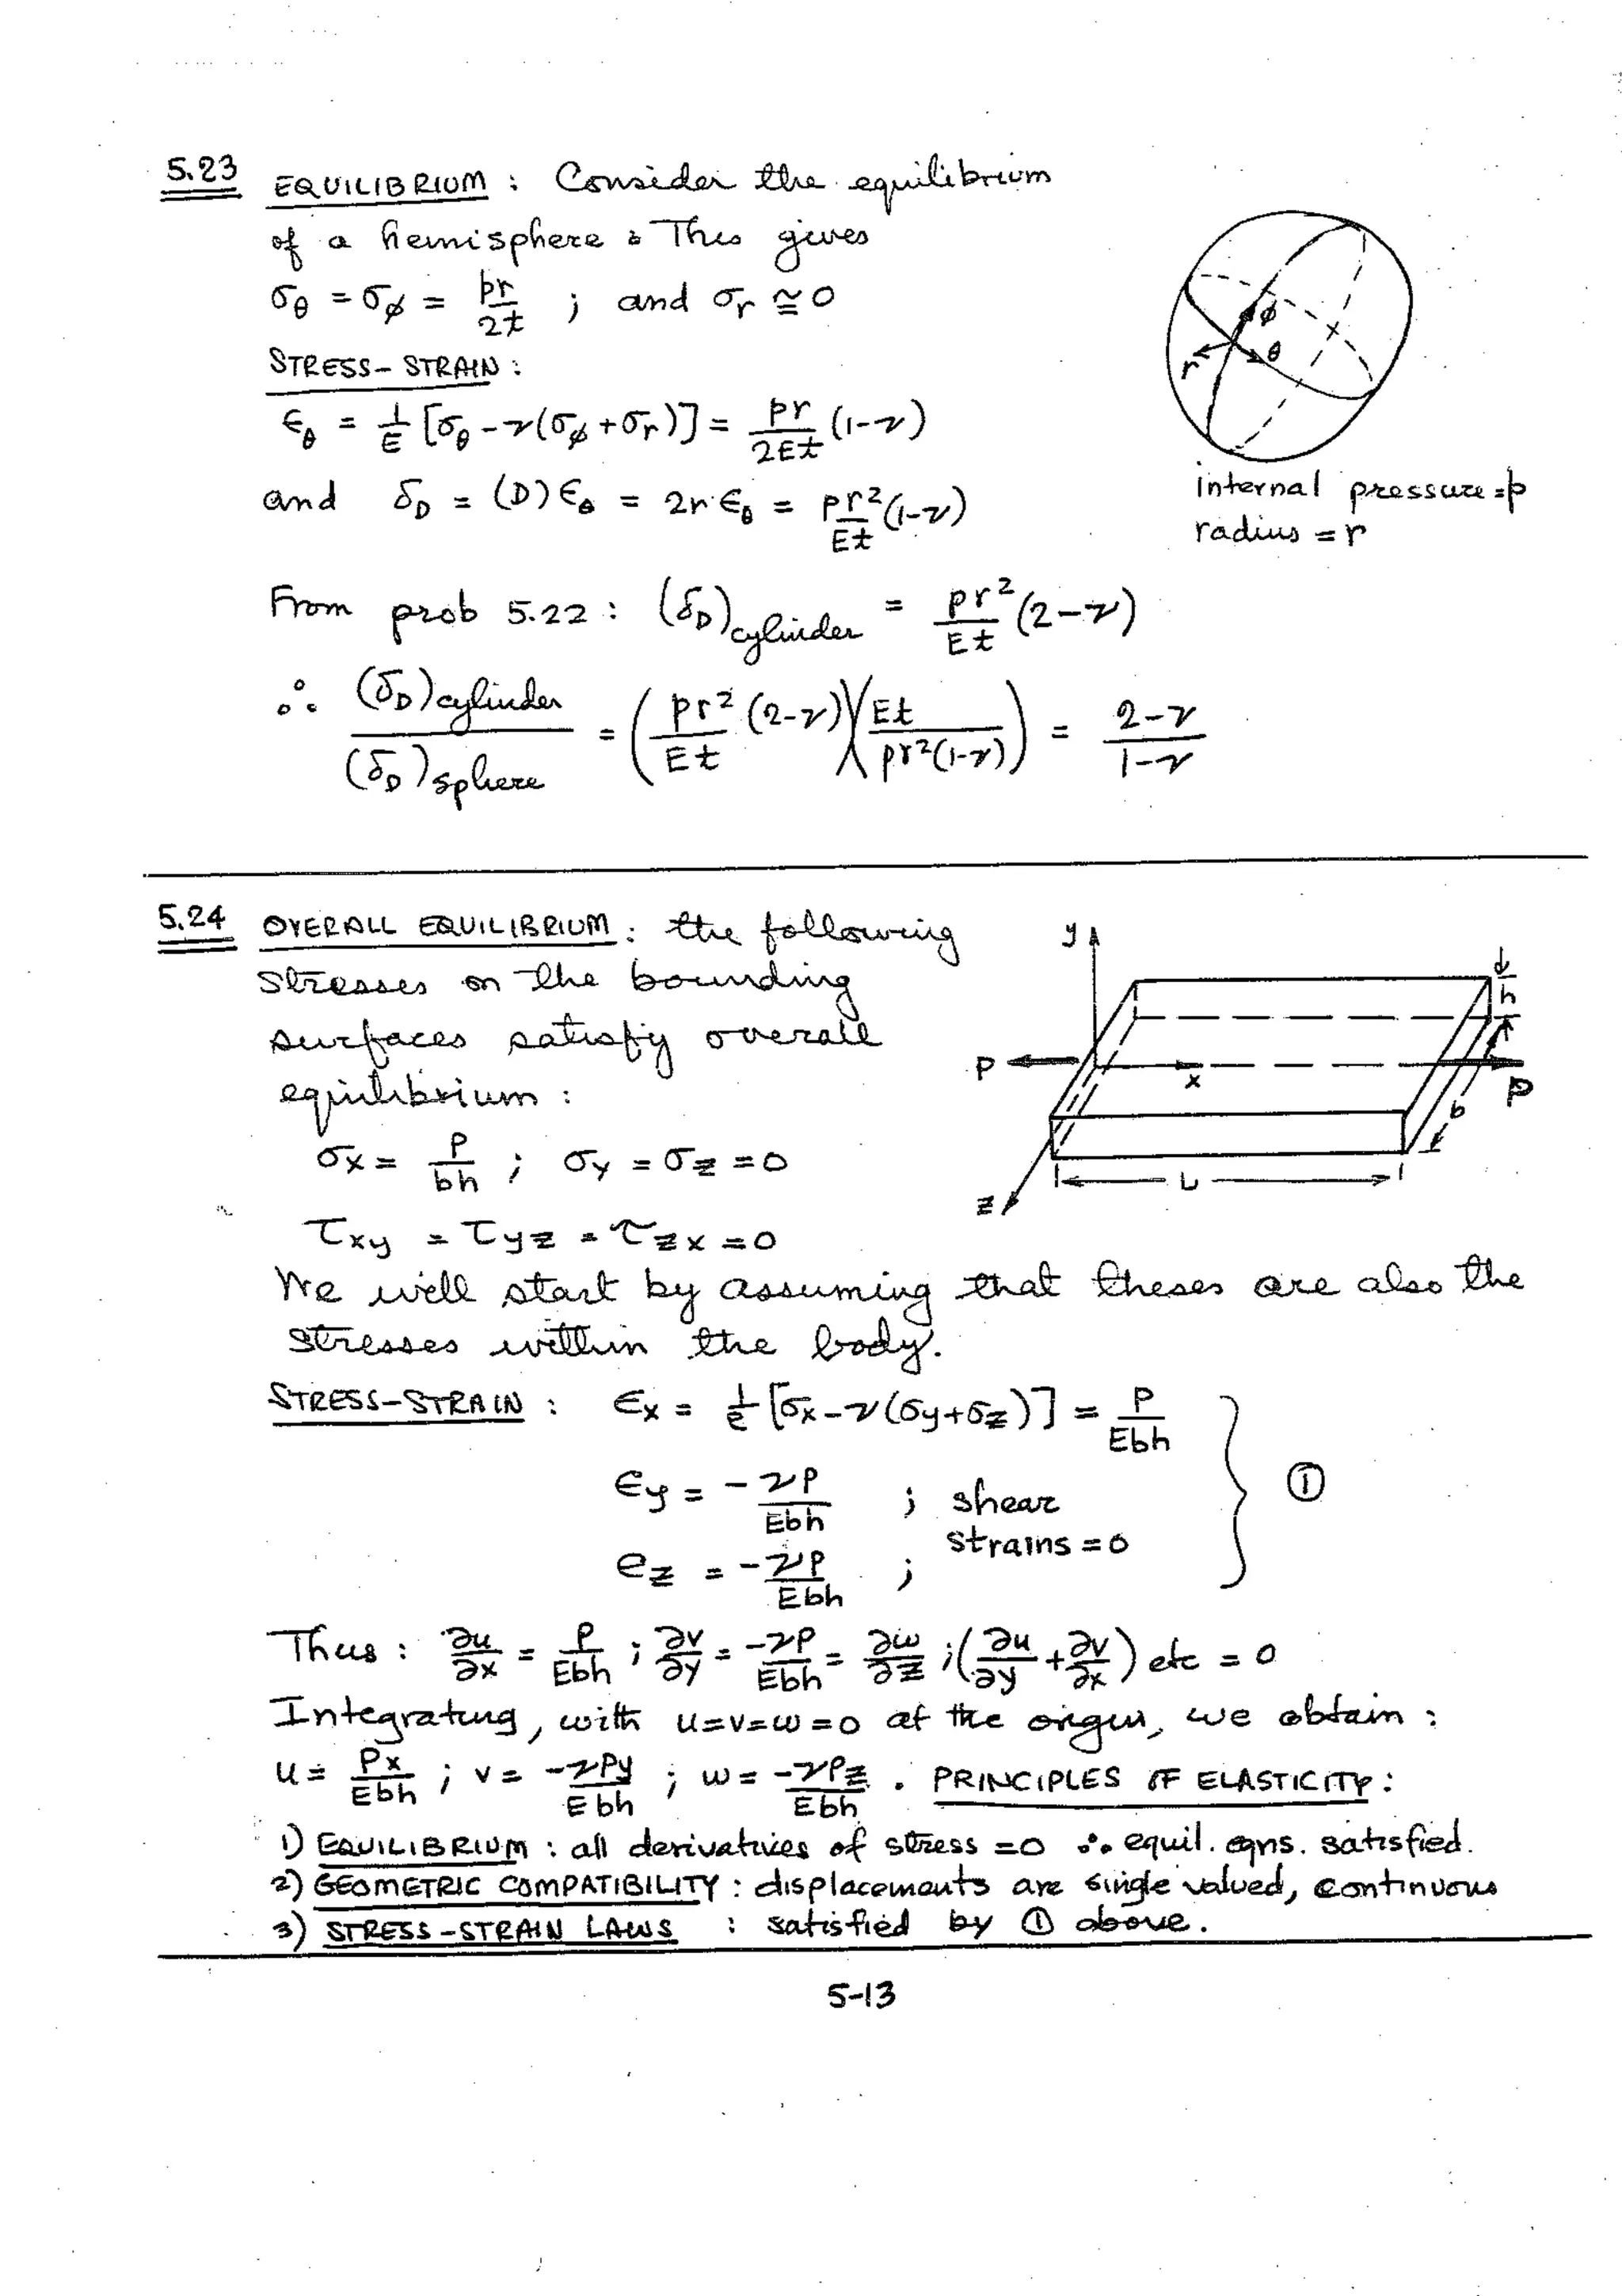 5.23 EQUILIBRIUM : Consider the equilibrium
of a hemisphere : This gives
σθ = σφ = pr/2t ; and σr ≅ 0
STRESS-STRAIN :
εθ = 1/E [σθ - ν(σφ + σr)] = pr/2Et (1-ν)
and δD = (D) εθ = 2r εθ = pr²/Et (1-ν)
φ
θ
r
internal pressure = p
radius = r
From prob 5.22 : (δD)cylinder = pr²/Et (2-ν)
∴ (δD)cylinder/(δD)sphere = (pr²/Et (2-ν))(Et/pr²(1-ν)) = 2-ν/1-ν
5.24 OVERALL EQUILIBRIUM : the following
stresses on the bounding
surfaces satisfy overall
equilibrium :
σx = P/bh ; σy = σz = 0
τxy = τyz = τzx = 0
y
h
P
x
P
b
L
z
We will start by assuming that theses are also the
stresses within the body.
STRESS-STRAIN : εx = 1/E [σx - ν(σy + σz)] = P/Ebh
εy = -νP/Ebh ; shear
strains = 0
ez = -νP/Ebh ;
①
Thus : ∂u/∂x = P/Ebh ; ∂v/∂y = -νP/Ebh = ∂w/∂z ; (∂u/∂y + ∂v/∂x) etc = 0
Integrating, with u=v=w=0 at the origin, we obtain :
u = Px/Ebh ; v = -νPy/Ebh ; w = -νPz/Ebh . PRINCIPLES OF ELASTICITY :
1) EQUILIBRIUM : all derivatives of stress = 0 ∴ equil. eqns. satisfied.
2) GEOMETRIC COMPATIBILITY : displacements are single valued, continuous
3) STRESS-STRAIN LAWS : satisfied by ① above.
5-13